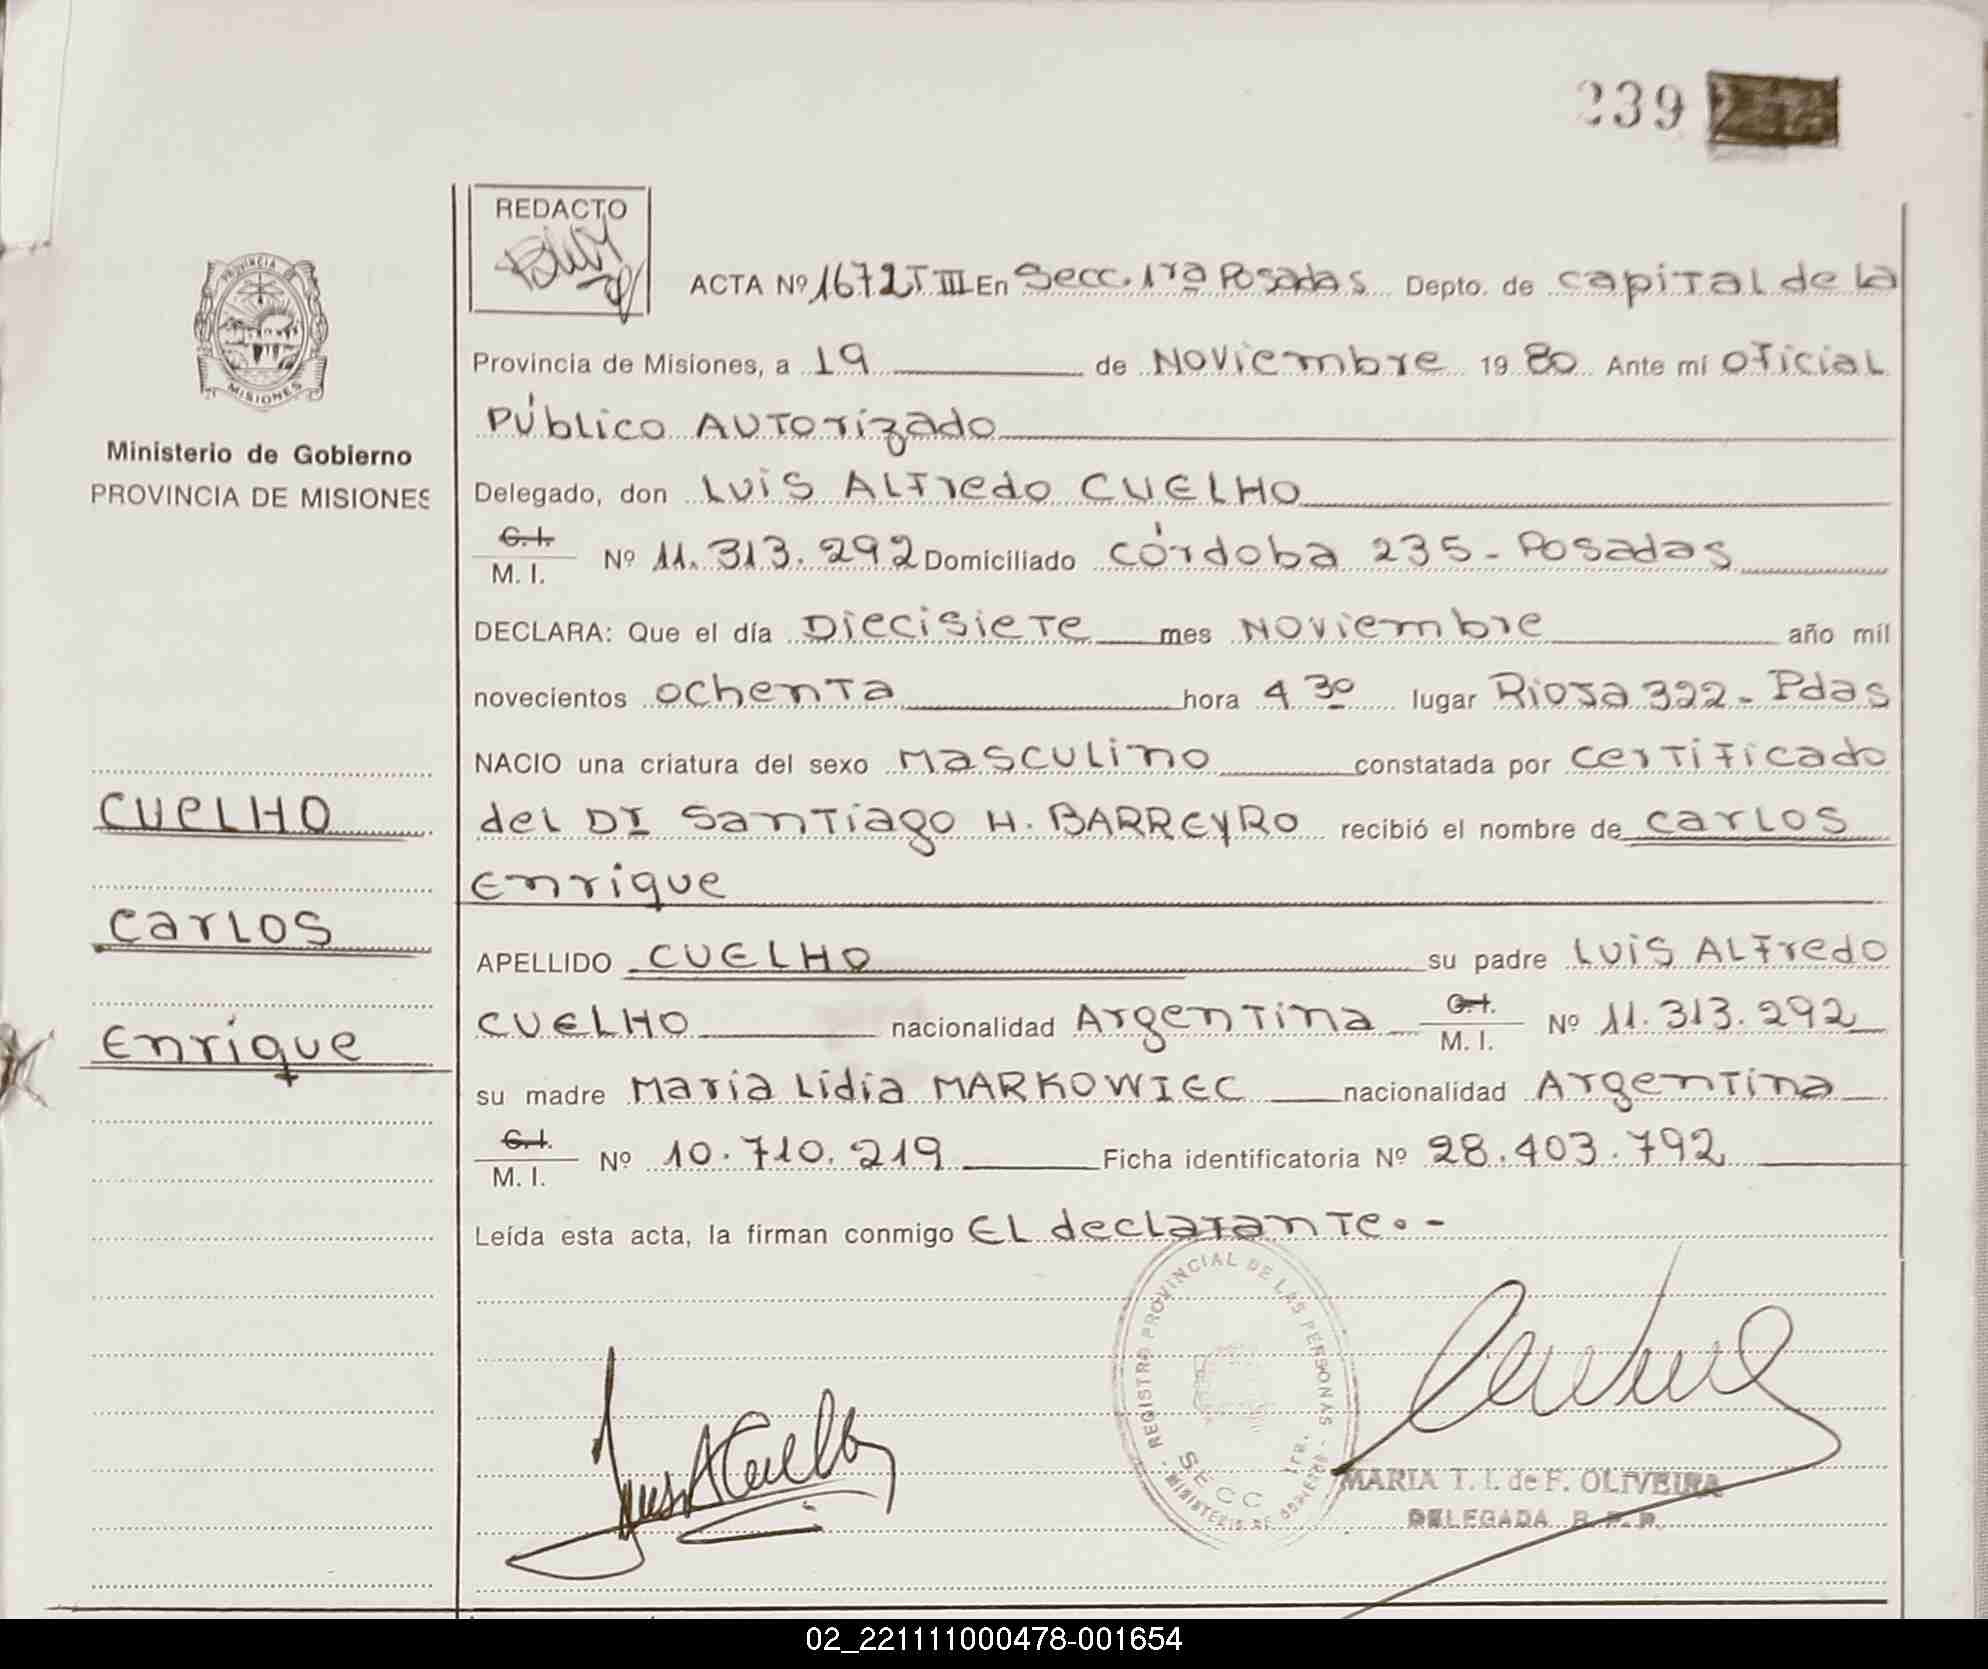 239
REDACTO
ACTA Nº 1672 T III En Secc. 1ra Posadas Depto. de capital de la
Provincia de Misiones, a 19 de Noviembre 1980 Ante mí oficial
Público Autorizado
Delegado, don Luis Alfredo CUELHO
C. I.
M. I. Nº 11.313.292 Domiciliado Córdoba 235 - Posadas
DECLARA: Que el día Diecisiete mes Noviembre año mil
novecientos ochenta hora 4 30 lugar Rioja 322 - Pdas
NACIO una criatura del sexo Masculino constatada por certificado
del Dr Santiago H. BARREYRO recibió el nombre de Carlos
Enrique
APELLIDO CUELHO su padre Luis Alfredo
CUELHO nacionalidad Argentina C. I. M. I. Nº 11.313.292
su madre Maria Lidia MARKOWIEC nacionalidad Argentina
C. I.
M. I. Nº 10.710.219 Ficha identificatoria Nº 28.403.792
Leída esta acta, la firman conmigo El declarante.-
PROVINCIA
MISIONES
Ministerio de Gobierno
PROVINCIA DE MISIONES
CUELHO
Carlos
Enrique
REGISTRO PROVINCIAL DE LAS PERSONAS
MINISTERIO DE GOBIERNO
SECC 1ra.
MARIA T. I. de F. OLIVEIRA
DELEGADA R. P. P.
02_221111000478-001654